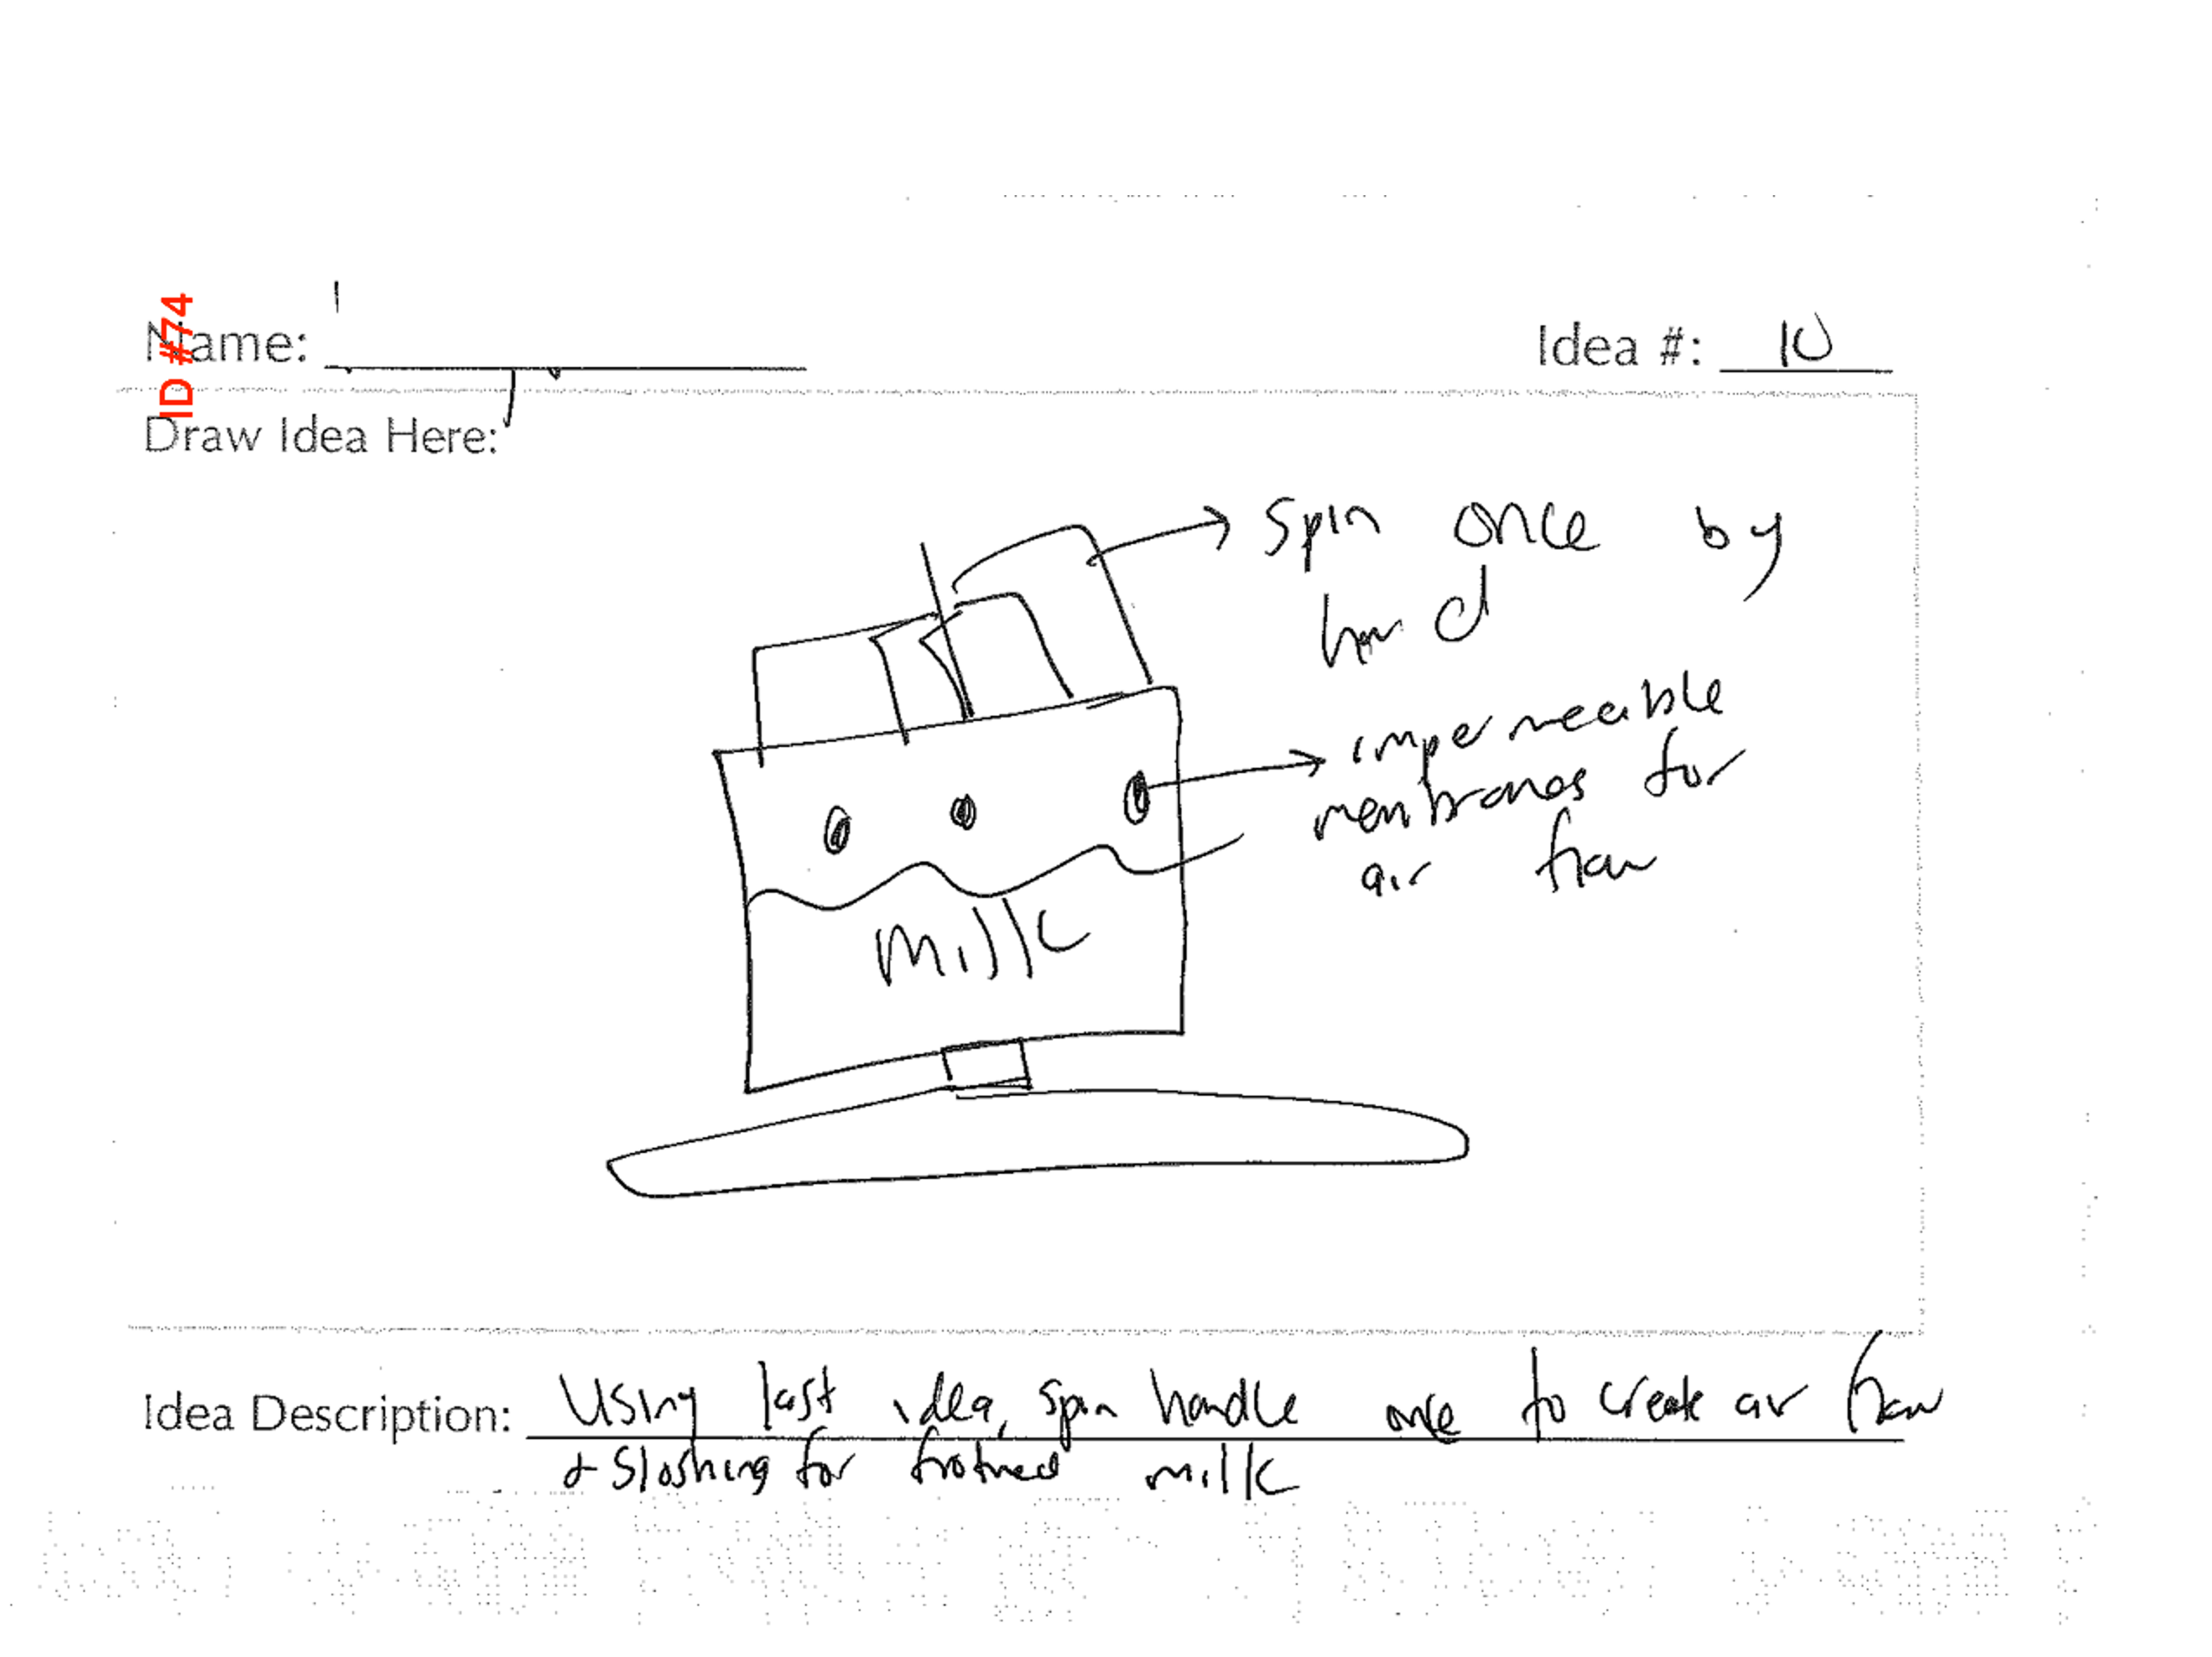 ID #74
Name:
Idea #: 10
Draw Idea Here:
Spin once by
hand
impermeable
membranes for
air flow
Milk
Idea Description: Using last idea, spin handle once to create air flow
& sloshing for frothed milk